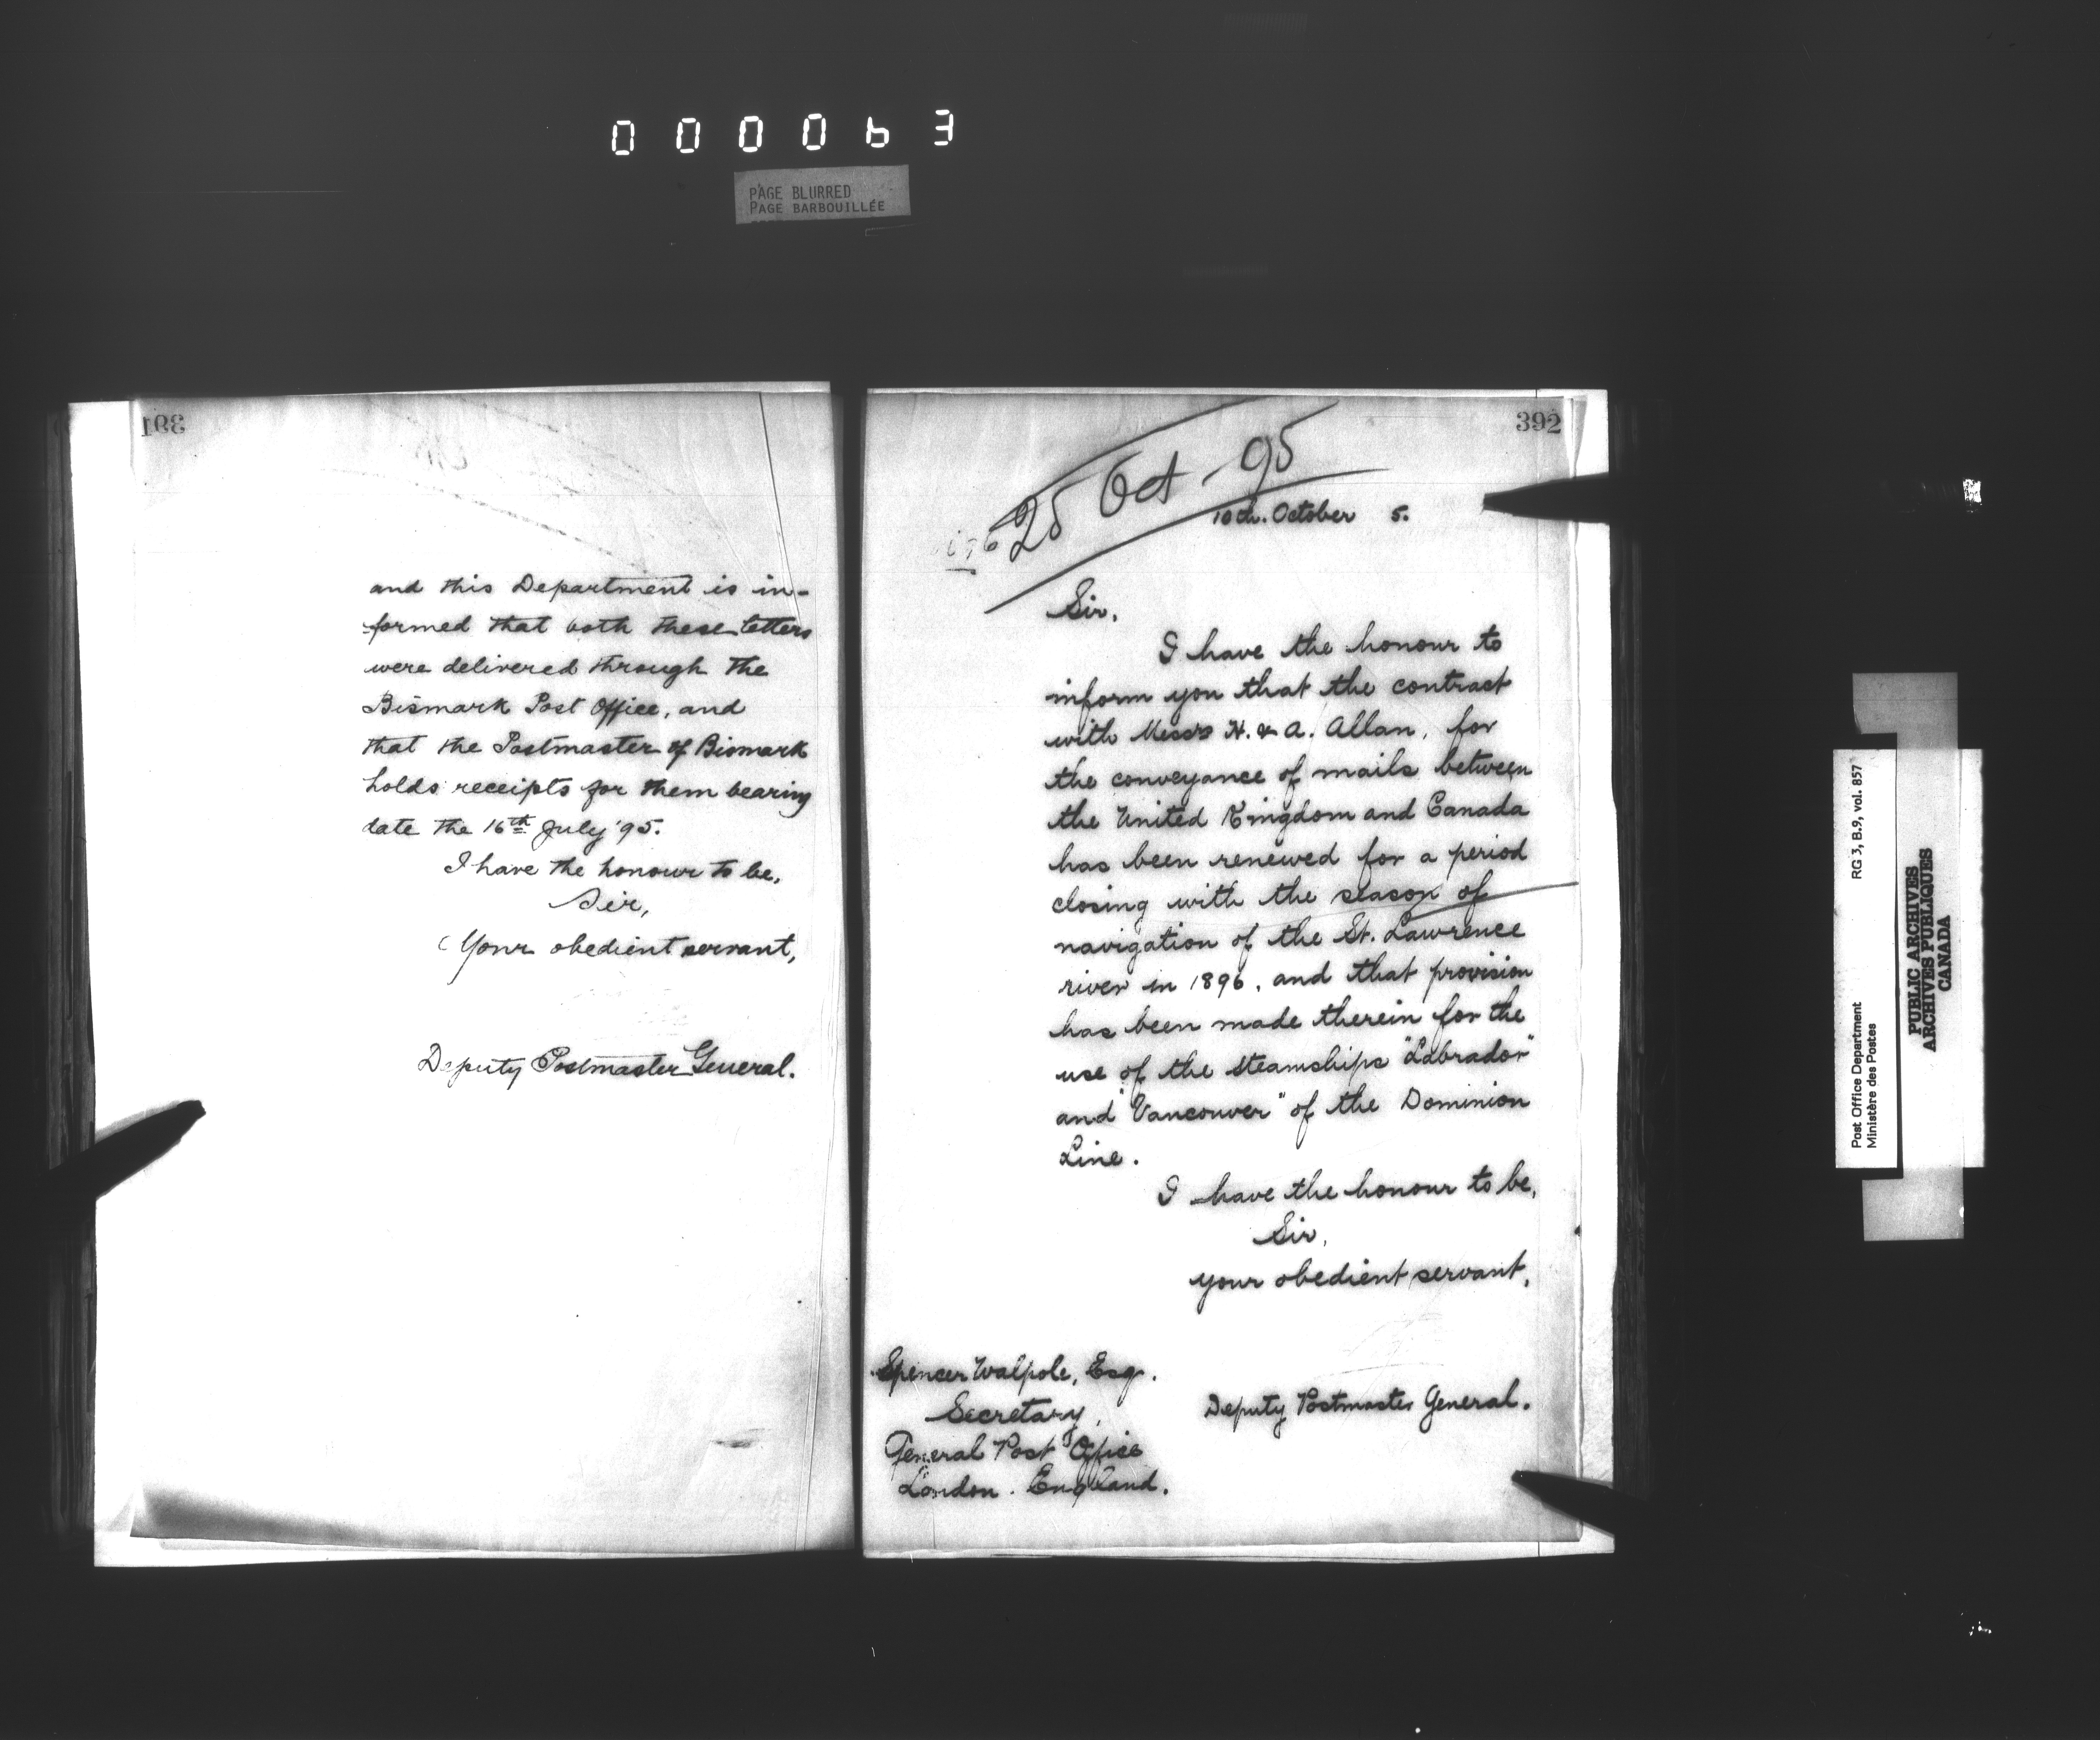 000063
PAGE BLURRED
PAGE BARBOUILLÉE
391
and this Department is in-
formed that both these letters
were delivered through the
Bismark Post Office, and
that the Postmaster of Bismark
holds receipts for them bearing
date the 16th July '95.
I have the honour to be,
Sir,
Your obedient servant,
Deputy Postmaster General.
392
25 Oct - 95
10th. October 5.
Sir,
I have the honour to
inform you that the contract
with Messrs H. & A. Allan, for
the conveyance of mails between
the United Kingdom and Canada
has been renewed for a period
closing with the season of
navigation of the St. Lawrence
river in 1896, and that provision
has been made therein for the
use of the steamships "Labrador"
and "Vancouver" of the Dominion
Line.
I have the honour to be,
Sir,
your obedient servant,
Deputy Postmaster General.
Spencer Walpole, Esq.
Secretary,
General Post Office
London. England.
Post Office Department
Ministère des Postes
RG 3, B.9, vol. 857
PUBLIC ARCHIVES
ARCHIVES PUBLIQUES
CANADA